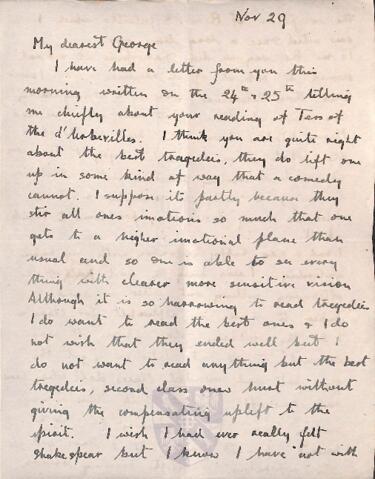 Nov 29
My dearest George
I have had a letter from you this
morning written on the 24th & 25th telling
me chiefly about your reading of Tess of
the d'Urbevilles. I think you are quite right
about the best tragedeis, they do lift one
up in some kind of way that a comedy
cannot. I suppose its partly because they
stir all ones imotions so much that one
gets to a higher imotional plane than
usual and so one is able to see every
thing with clearer more sensitive vision
Although it is so harrowing to read tragedeis
I do want to read the best ones & I do
not wish that they ended well but I
do not want to read anything but the best
tragedeis, second class ones hurt without
giving the compensating uplift to the
spirit. I wish I had ever really felt
Shakespear but I know I have not with